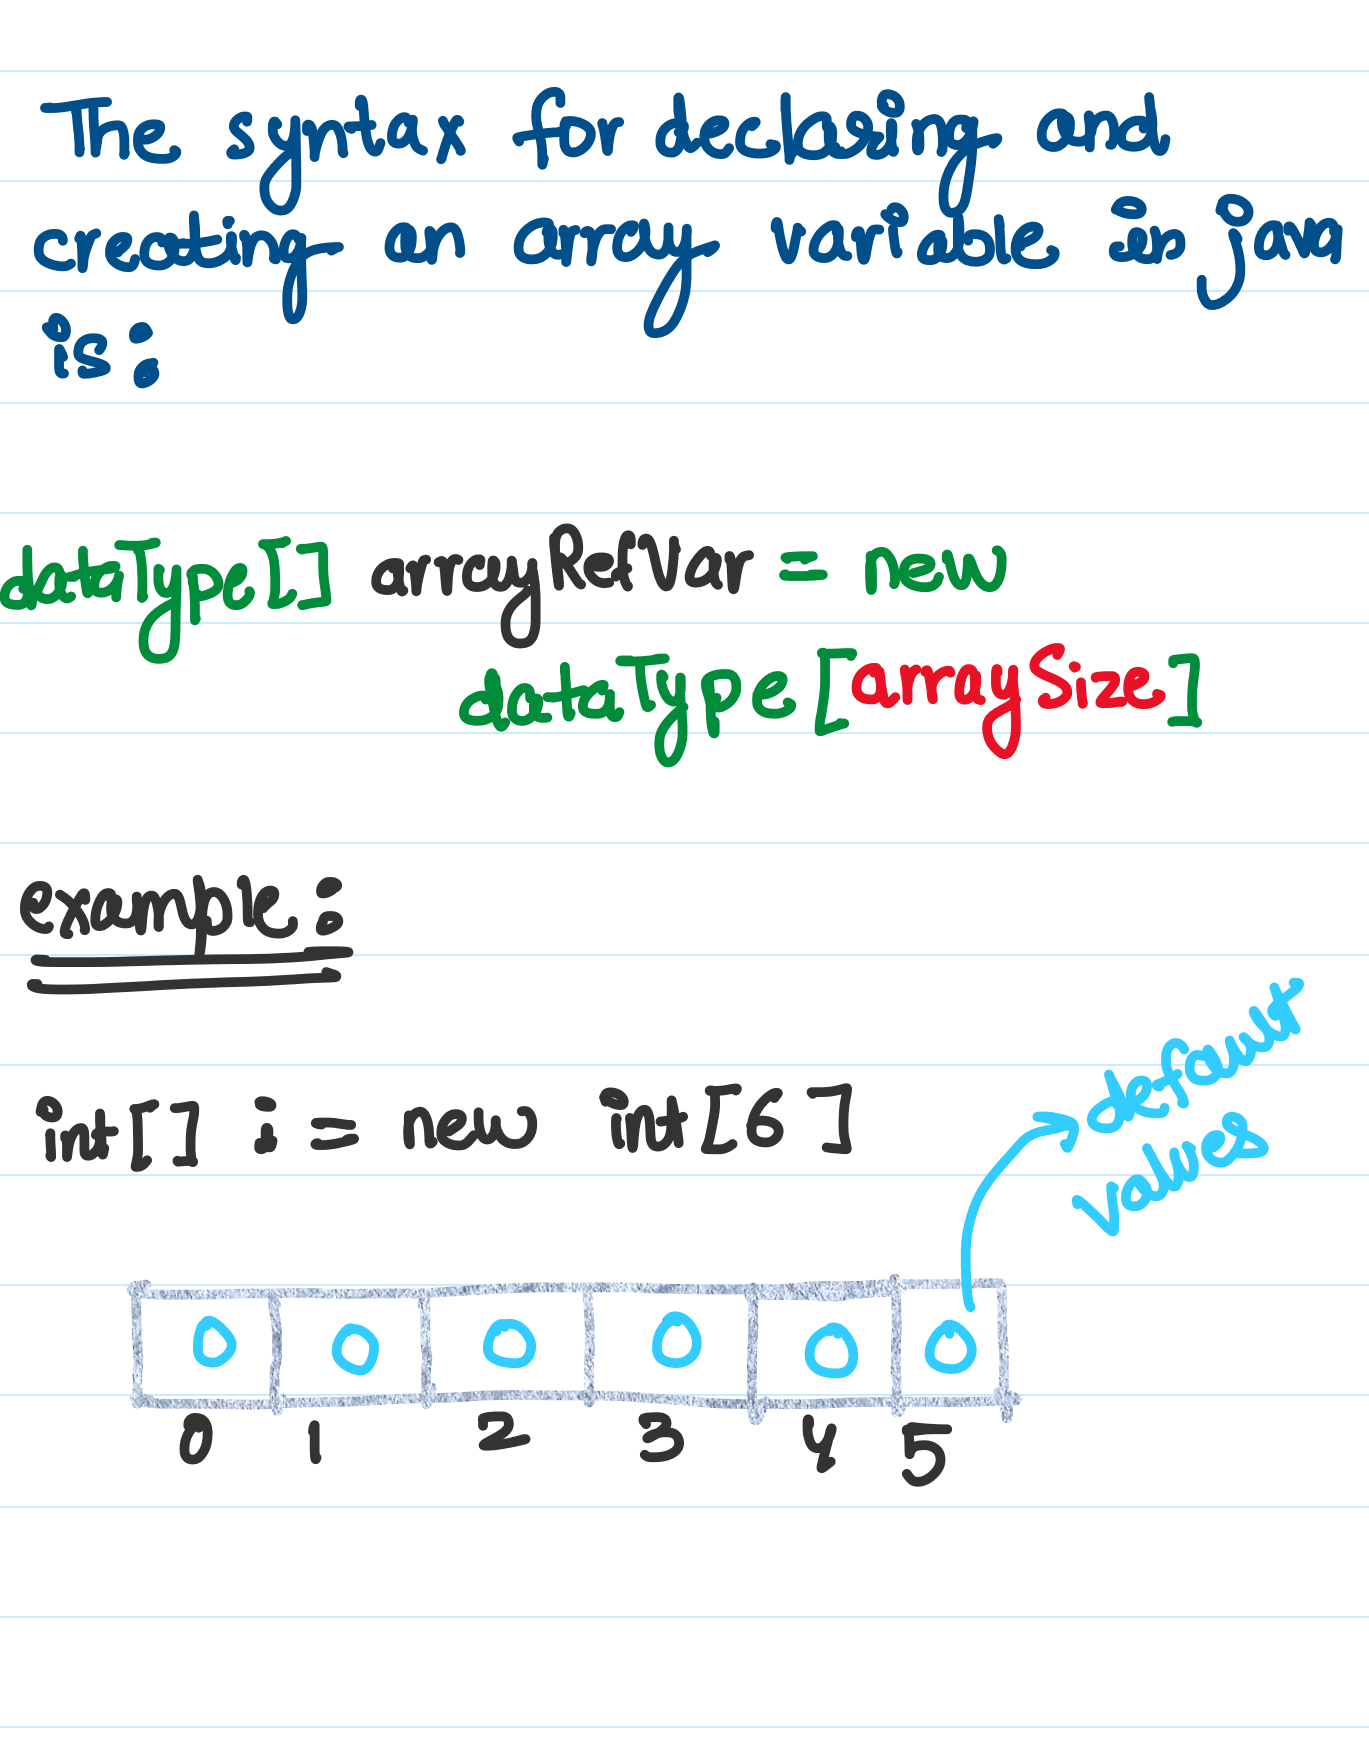 The syntax for declaring and
creating an array variable in java
is:
dataType[] arrayRefVar = new
dataType[arraySize]
example:
int[] i = new int[6]
default
values
0 0 0 0 0 0
0 1 2 3 4 5